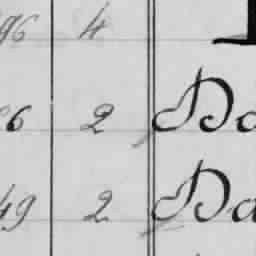 96 4
6 2 Da
49 2 Da